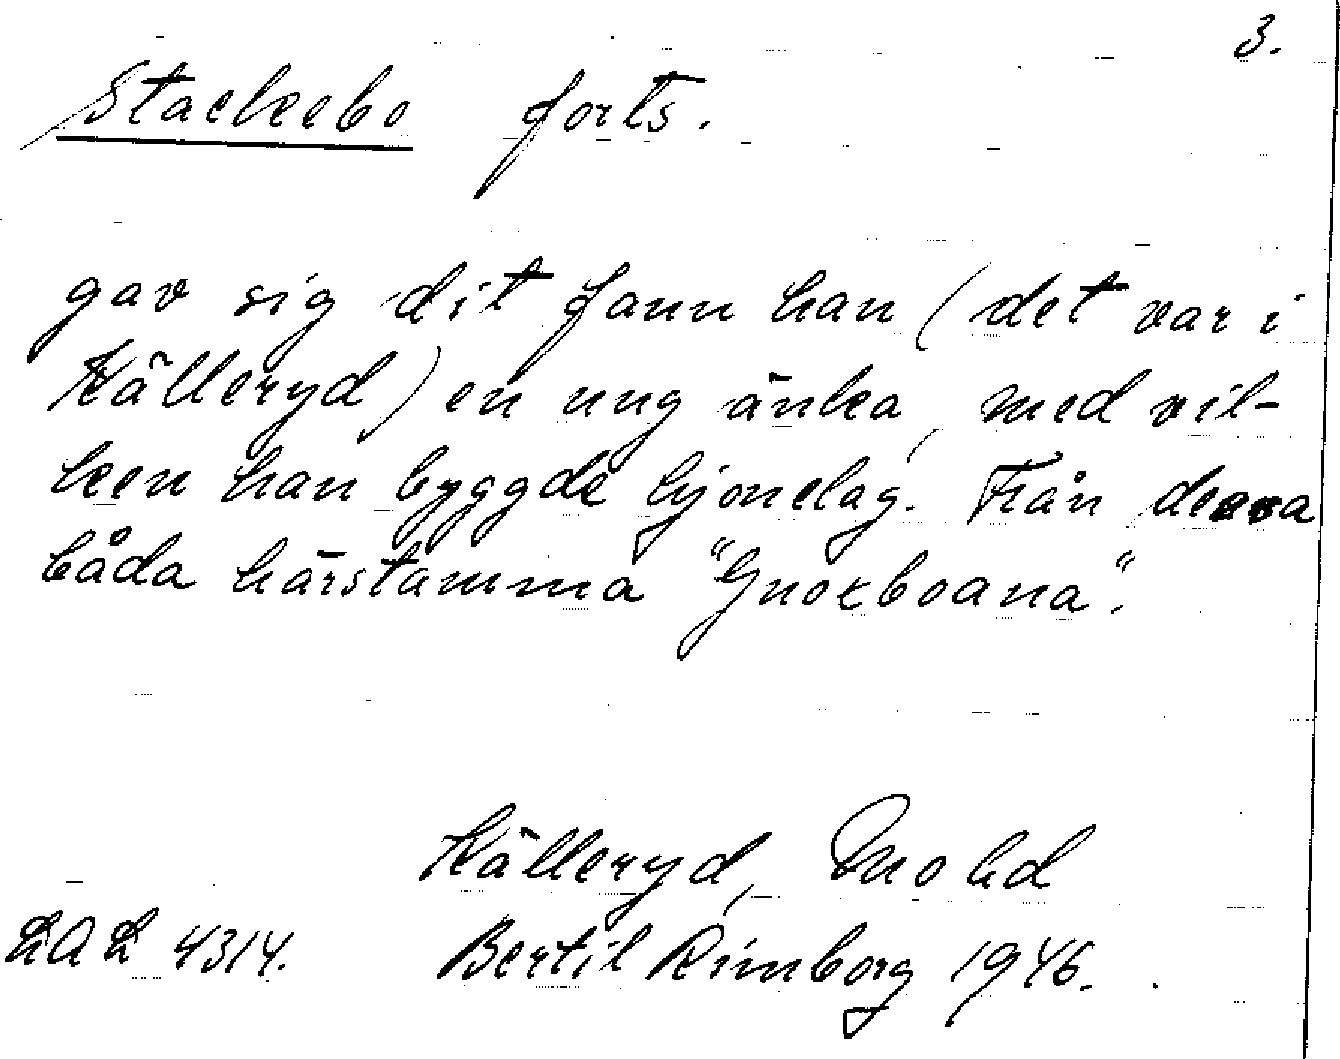 3.
Stackebo forts.
gav sig dit fann han (det var i
Källeryd) en ung änka, med vil-
ken han byggde hjonelag. Från dessa
båda härstamma "Gnoxboana".
Källeryd, Mo hd
LAL 4314. Bertil Rimborg 1946.